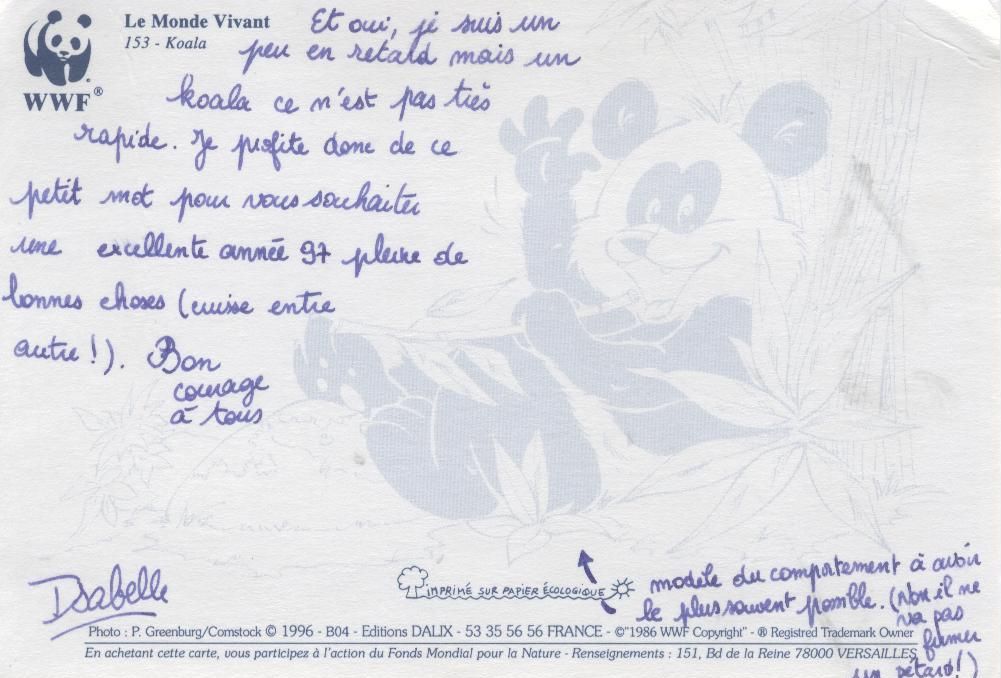 Le Monde Vivant
153 - Koala
WWF®
Et oui, je suis un
peu en retard mais un
koala ce n'est pas très
rapide. Je profite donc de ce
petit mot pour vous souhaiter
une excellente année 97 pleine de
bonnes choses (cuise entre
autre !). Bon
courage
à tous
Isabelle
IMPRIMÉ SUR PAPIER ÉCOLOGIQUE
modèle du comportement à avoir
le plus souvent possible. (Non il ne
va pas
fumer
un pétard!)
Photo : P. Greenburg/Comstock © 1996 - B04 - Editions DALIX - 53 35 56 56 FRANCE - ©"1986 WWF Copyright" - ® Registred Trademark Owner
En achetant cette carte, vous participez à l'action du Fonds Mondial pour la Nature - Renseignements : 151, Bd de la Reine 78000 VERSAILLES